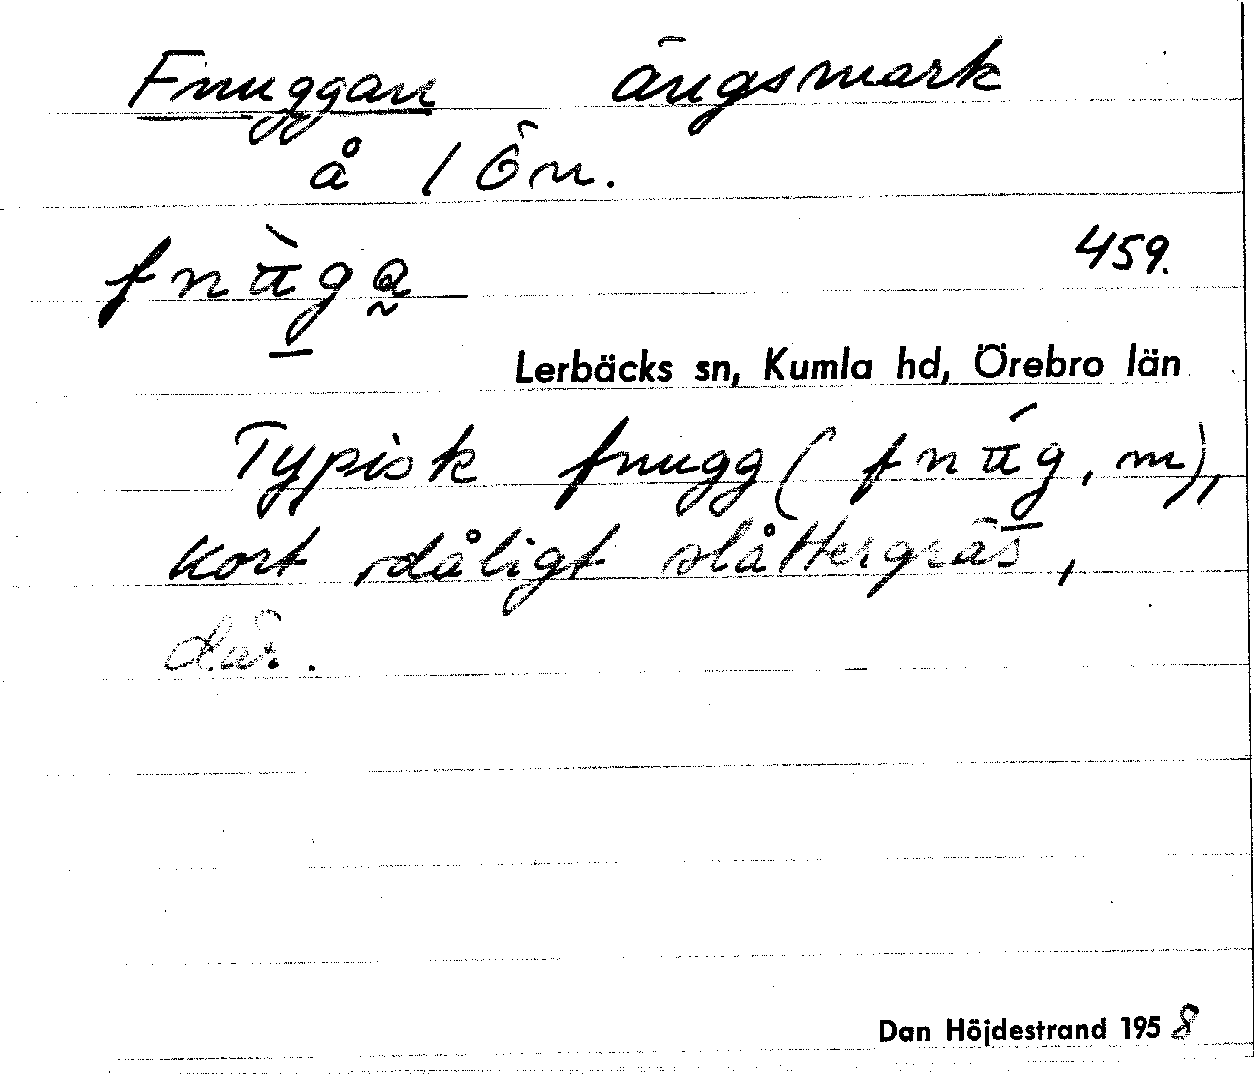 Fnuggan ängsmark
å 1 Ön.
fnùga̰
459.
Lerbäcks sn, Kumla hd, Örebro län
Typisk fnugg (fnúg, m),
kort dåligt slåttergräs,
där.
Dan Höjdestrand 1958